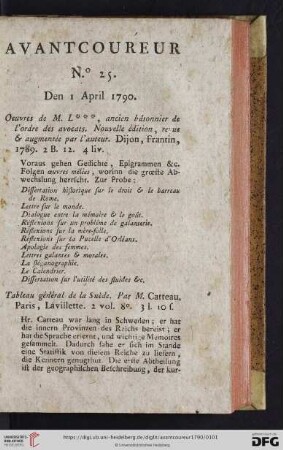 AVANTCOUREUR
N.º 25.
Den 1 April 1790.
Oeuvres de M. L***, ancien bâtonnier de
l'ordre des avocats. Nouvelle édition, revue
& augmentée par l'auteur. Dijon, Frantin,
1789. 2 B. 12. 4 liv.
Voraus gehen Gedichte, Epigrammen &c.
Folgen œuvres mêlées, worinn die grœste Ab-
wechslung herrscht. Zur Probe:
Dissertation historique sur le droit & le barreau
de Rome.
Lettre sur le monde.
Dialogue entre la mémoire & le goût.
Réflexions sur un problème de galanterie.
Réflexions sur la mère-folle.
Réflexions sur la Pucelle d'Orléans.
Apologie des femmes.
Lettres galantes & morales.
La stéganographie.
Le Calendrier.
Dissertation sur l'utilité des fluides &c.
Tableau général de la Suède. Par M. Catteau,
Paris, Lavillette. 2 vol. 8º. 3 l. 10 s.
Hr. Catteau war lang in Schweden; er hat
die innern Provinzen des Reichs bereist; er
hat die Sprache erlernt, und wichtige Memoires
gesammelt. Dadurch sahe er sich im Stande
eine Statistik von diesem Reiche zu liefern,
die Kennern genugthut. Die erste Abtheilung
ist der geographischen Beschreibung, der kur-
AVANTCOUREUR
http://digi.ub.uni-heidelberg.de/diglit/avantcoureur1790/0101
UNIVERSITÄTS-
BIBLIOTHEK
HEIDELBERG
gefördert durch die
DFG